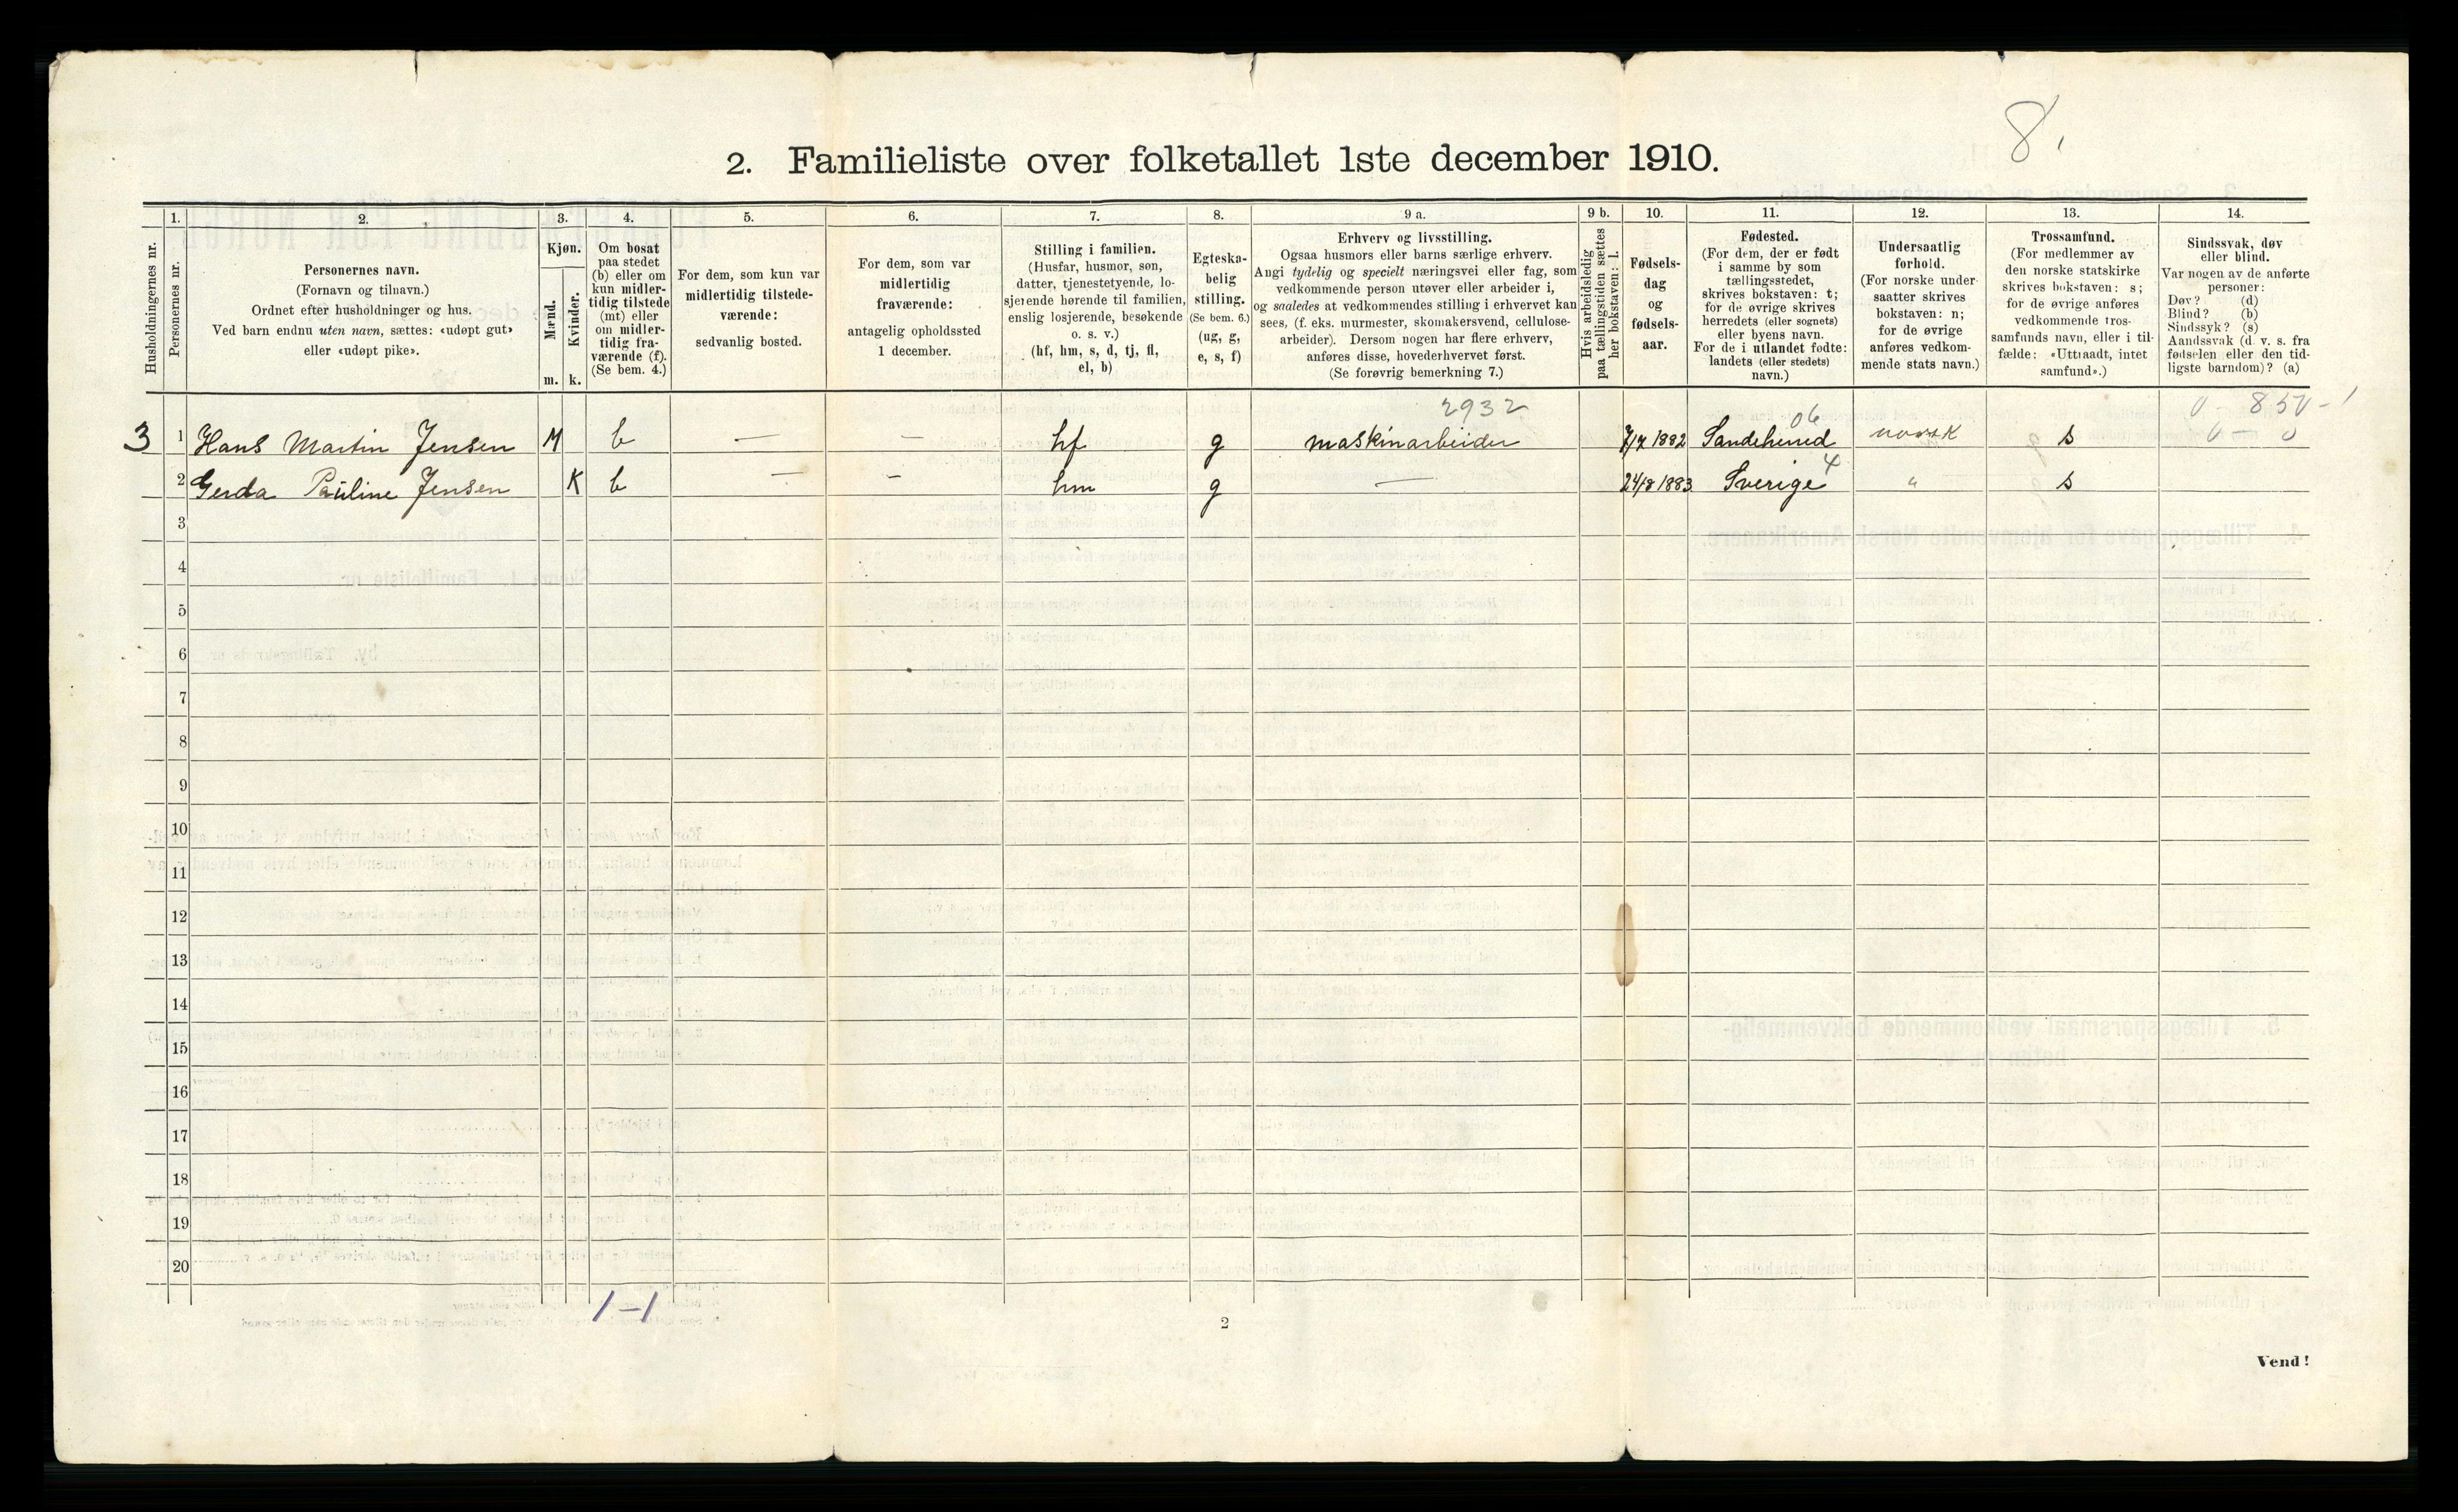 8.
2. Familieliste over folketallet 1ste december 1910.
Husholdningernes nr.
1.
Personernes nr.
2.
Personernes navn.
(Fornavn og tilnavn.)
Ordnet efter husholdninger og hus.
Ved barn endnu uten navn, sættes: «udøpt gut»
eller «udøpt pike».
3.
Kjøn.
Mænd.
m.
Kvinder.
k.
4.
Om bosat
paa stedet
(b) eller om
kun midler-
tidig tilstede
(mt) eller
om midler-
tidig fra-
værende (f).
(Se bem. 4.)
5.
For dem, som kun var
midlertidig tilstede-
værende:
sedvanlig bosted.
6.
For dem, som var
midlertidig
fraværende:
antagelig opholdssted
1 december.
7.
Stilling i familien.
(Husfar, husmor, søn,
datter, tjenestetyende, lo-
sjerende hørende til familien,
enslig losjerende, besøkende
o. s. v.)
(hf, hm, s, d, tj, fl,
el, b)
8.
Egteska-
belig
stilling.
(Se bem. 6.)
(ug, g,
e, s, f)
9 a.
Erhverv og livsstilling.
Ogsaa husmors eller barns særlige erhverv.
Angi tydelig og specielt næringsvei eller fag, som
vedkommende person utøver eller arbeider i,
og saaledes at vedkommendes stilling i erhvervet kan
sees, (f. eks. murmester, skomakersvend, cellulose-
arbeider). Dersom nogen har flere erhverv,
anføres disse, hovederhvervet først.
(Se forøvrig bemerkning 7.)
9 b.
Hvis arbeidsledig
paa tællingstiden sættes
her bokstaven: l.
10.
Fødsels-
dag
og
fødsels-
aar.
11.
Fødested.
(For dem, der er født
i samme by som
tællingsstedet,
skrives bokstaven: t;
for de øvrige skrives
herredets (eller sognets)
eller byens navn.
For de i utlandet fødte:
landets (eller stedets)
navn.)
12.
Undersaatlig
forhold.
(For norske under-
saatter skrives
bokstaven: n;
for de øvrige
anføres vedkom-
mende stats navn.)
13.
Trossamfund.
(For medlemmer av
den norske statskirke
skrives bokstaven: s;
for de øvrige anføres
vedkommende tros-
samfunds navn, eller i til-
fælde: «Uttraadt, intet
samfund».)
14.
Sindssvak, døv
eller blind.
Var nogen av de anførte
personer:
Døv? (d)
Blind? (b)
Sindssyk? (s)
Aandssvak (d. v. s. fra
fødselen eller den tid-
ligste barndom)? (a)
2932
06
3 1 Hans Martin Jensen M b — — hf g maskinarbeider 1882 Sandeherred norsk s
4
2 Gerda Pauline Jensen K b — — hm g — 24/8 1883 Sverige " s
3
4
5
6
7
8
9
10
11
12
13
14
15
16
17
18
19
20
1-1
2
Vend!